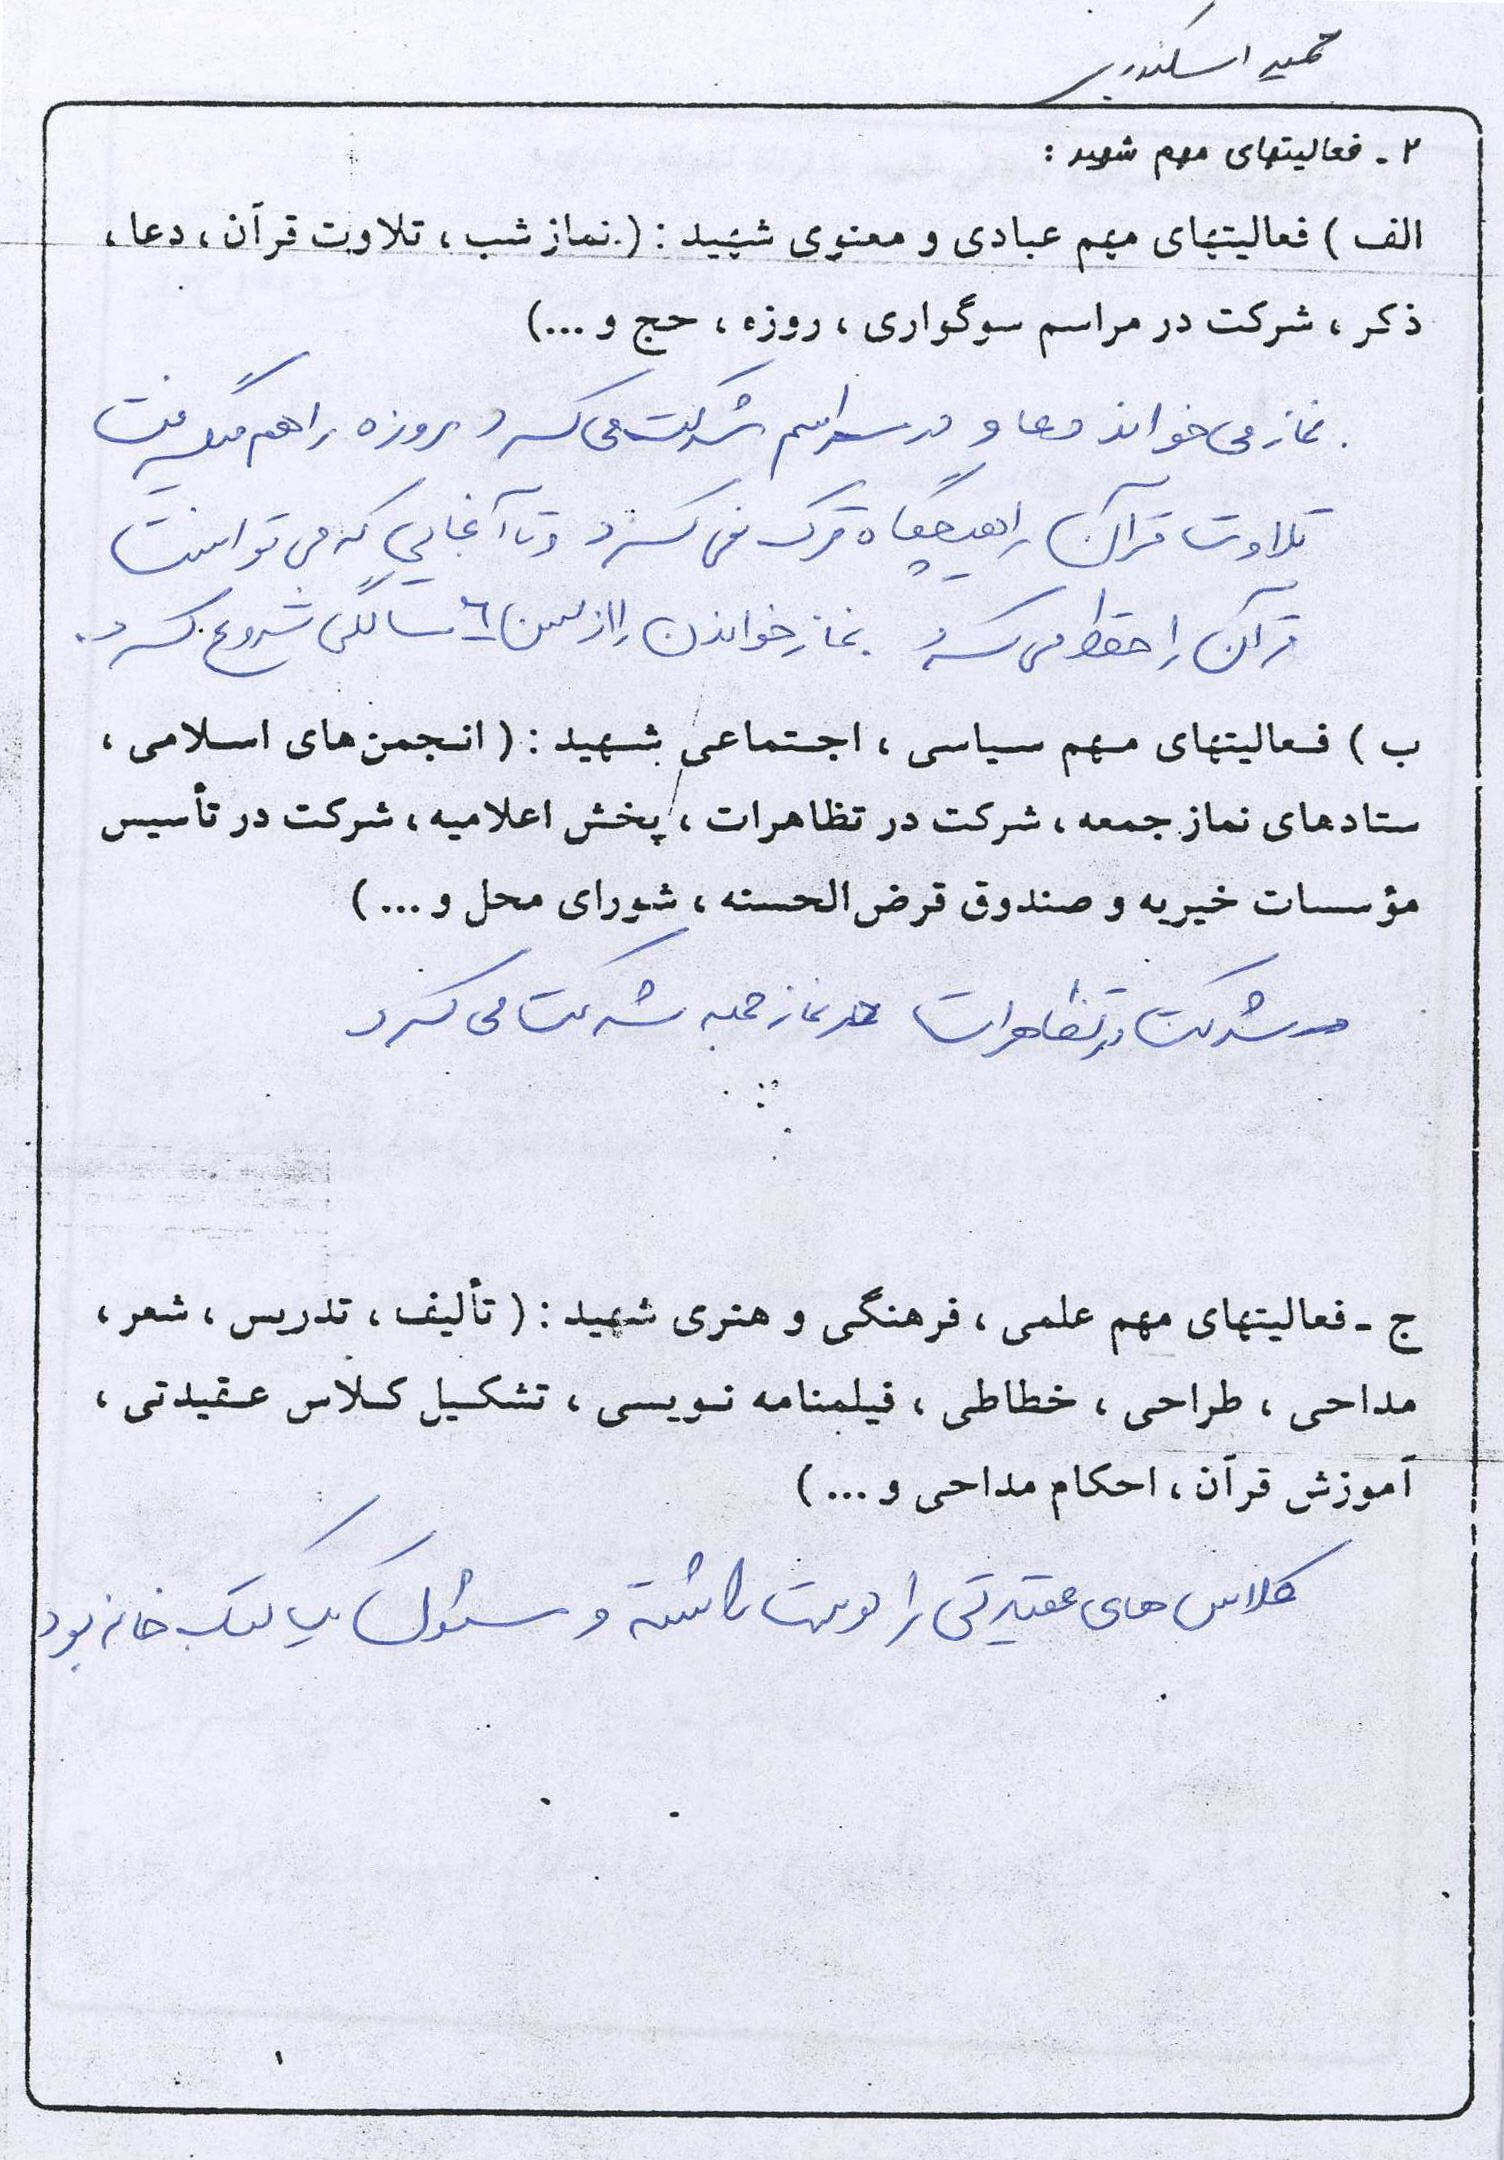 حمید اسکندری
۲ - فعالیتهای مهم شهید :
الف ) فعالیتهای مهم عبادی و معنوی شهید : ( نماز شب ، تلاوت قرآن ، دعا ،
ذکر ، شرکت در مراسم سوگواری ، روزه ، حج و ...)
نماز می خواند دعا و در مراسم شرکت می کرد روزه را هم میگرفت
تلاوت قرآن را هیچگاه ترک نمی کرد و تا آنجایی که می توانست
قرآن را حفظ می کرد . نماز خواندن را از سن ٦ سالگی شروع کرد .
ب ) فعالیتهای مهم سیاسی ، اجتماعی شهید : ( انجمن های اسلامی ،
ستادهای نماز جمعه ، شرکت در تظاهرات ، پخش اعلامیه ، شرکت در تأسیس
مؤسسات خیریه و صندوق قرض الحسنه ، شورای محل و ... )
شرکت در تظاهرات در نماز جمعه شرکت می کرد
ج - فعالیتهای مهم علمی ، فرهنگی و هنری شهید : ( تألیف ، تدریس ، شعر ،
مداحی ، طراحی ، خطاطی ، فیلمنامه نویسی ، تشکیل کلاس عقیدتی ،
آموزش قرآن ، احکام مداحی و ... )
کلاس های عقیدتی را دوست داشته و مسئول یک کتاب خانه بود